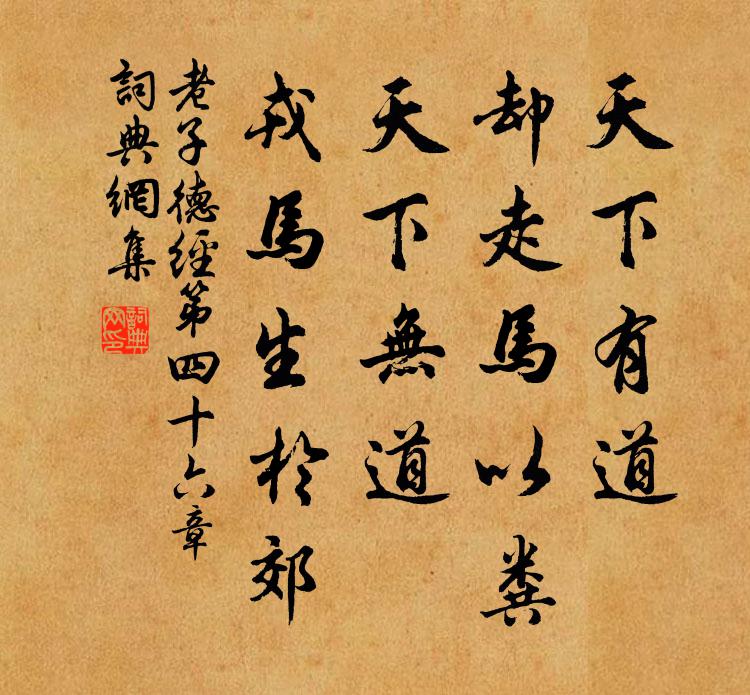 天下有道
却走馬以糞
天下無道
戎馬生於郊
老子德經第四十六章
詞典網集
詞典網印